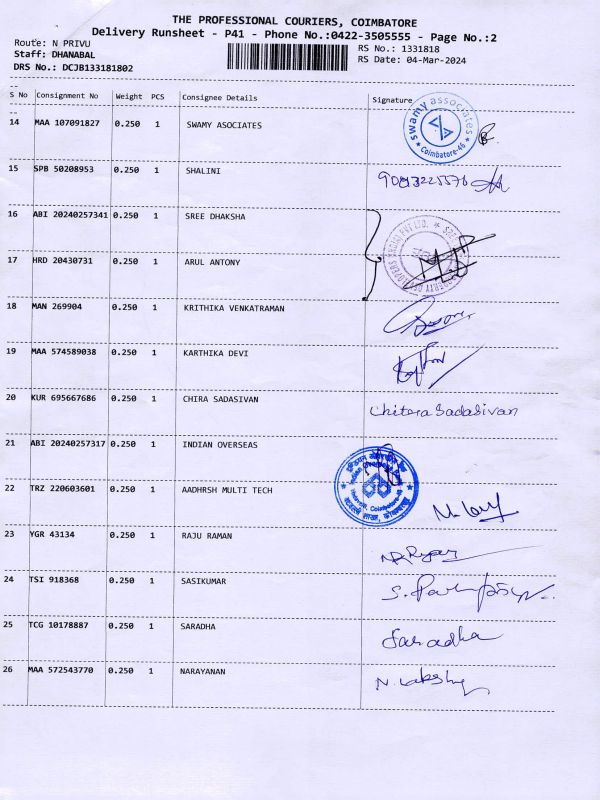 THE PROFESSIONAL COURIERS, COIMBATORE
Delivery Runsheet - P41 - Phone No.:0422-3505555 - Page No.:2
Route: N PRIVU
RS No.: 1331818
Staff: DHANABAL
RS Date: 04-Mar-2024
DRS No.: DCJB133181802
S No Consignment No Weight PCS Consignee Details Signature
14 MAA 107091827 0.250 1 SWAMY ASOCIATES
swamy associates
* Coimbatore-46 *
15 SPB 50208953 0.250 1 SHALINI
16 ABI 20240257341 0.250 1 SREE DHAKSHA
17 HRD 20430731 0.250 1 ARUL ANTONY
18 MAN 269904 0.250 1 KRITHIKA VENKATRAMAN
19 MAA 574589038 0.250 1 KARTHIKA DEVI
20 KUR 695667686 0.250 1 CHIRA SADASIVAN
Chitora Sadasivan
21 ABI 20240257317 0.250 1 INDIAN OVERSEAS
22 TRZ 220603601 0.250 1 AADHRSH MULTI TECH
23 YGR 43134 0.250 1 RAJU RAMAN
24 TSI 918368 0.250 1 SASIKUMAR
25 TCG 10178887 0.250 1 SARADHA
Saradha
26 MAA 572543770 0.250 1 NARAYANAN